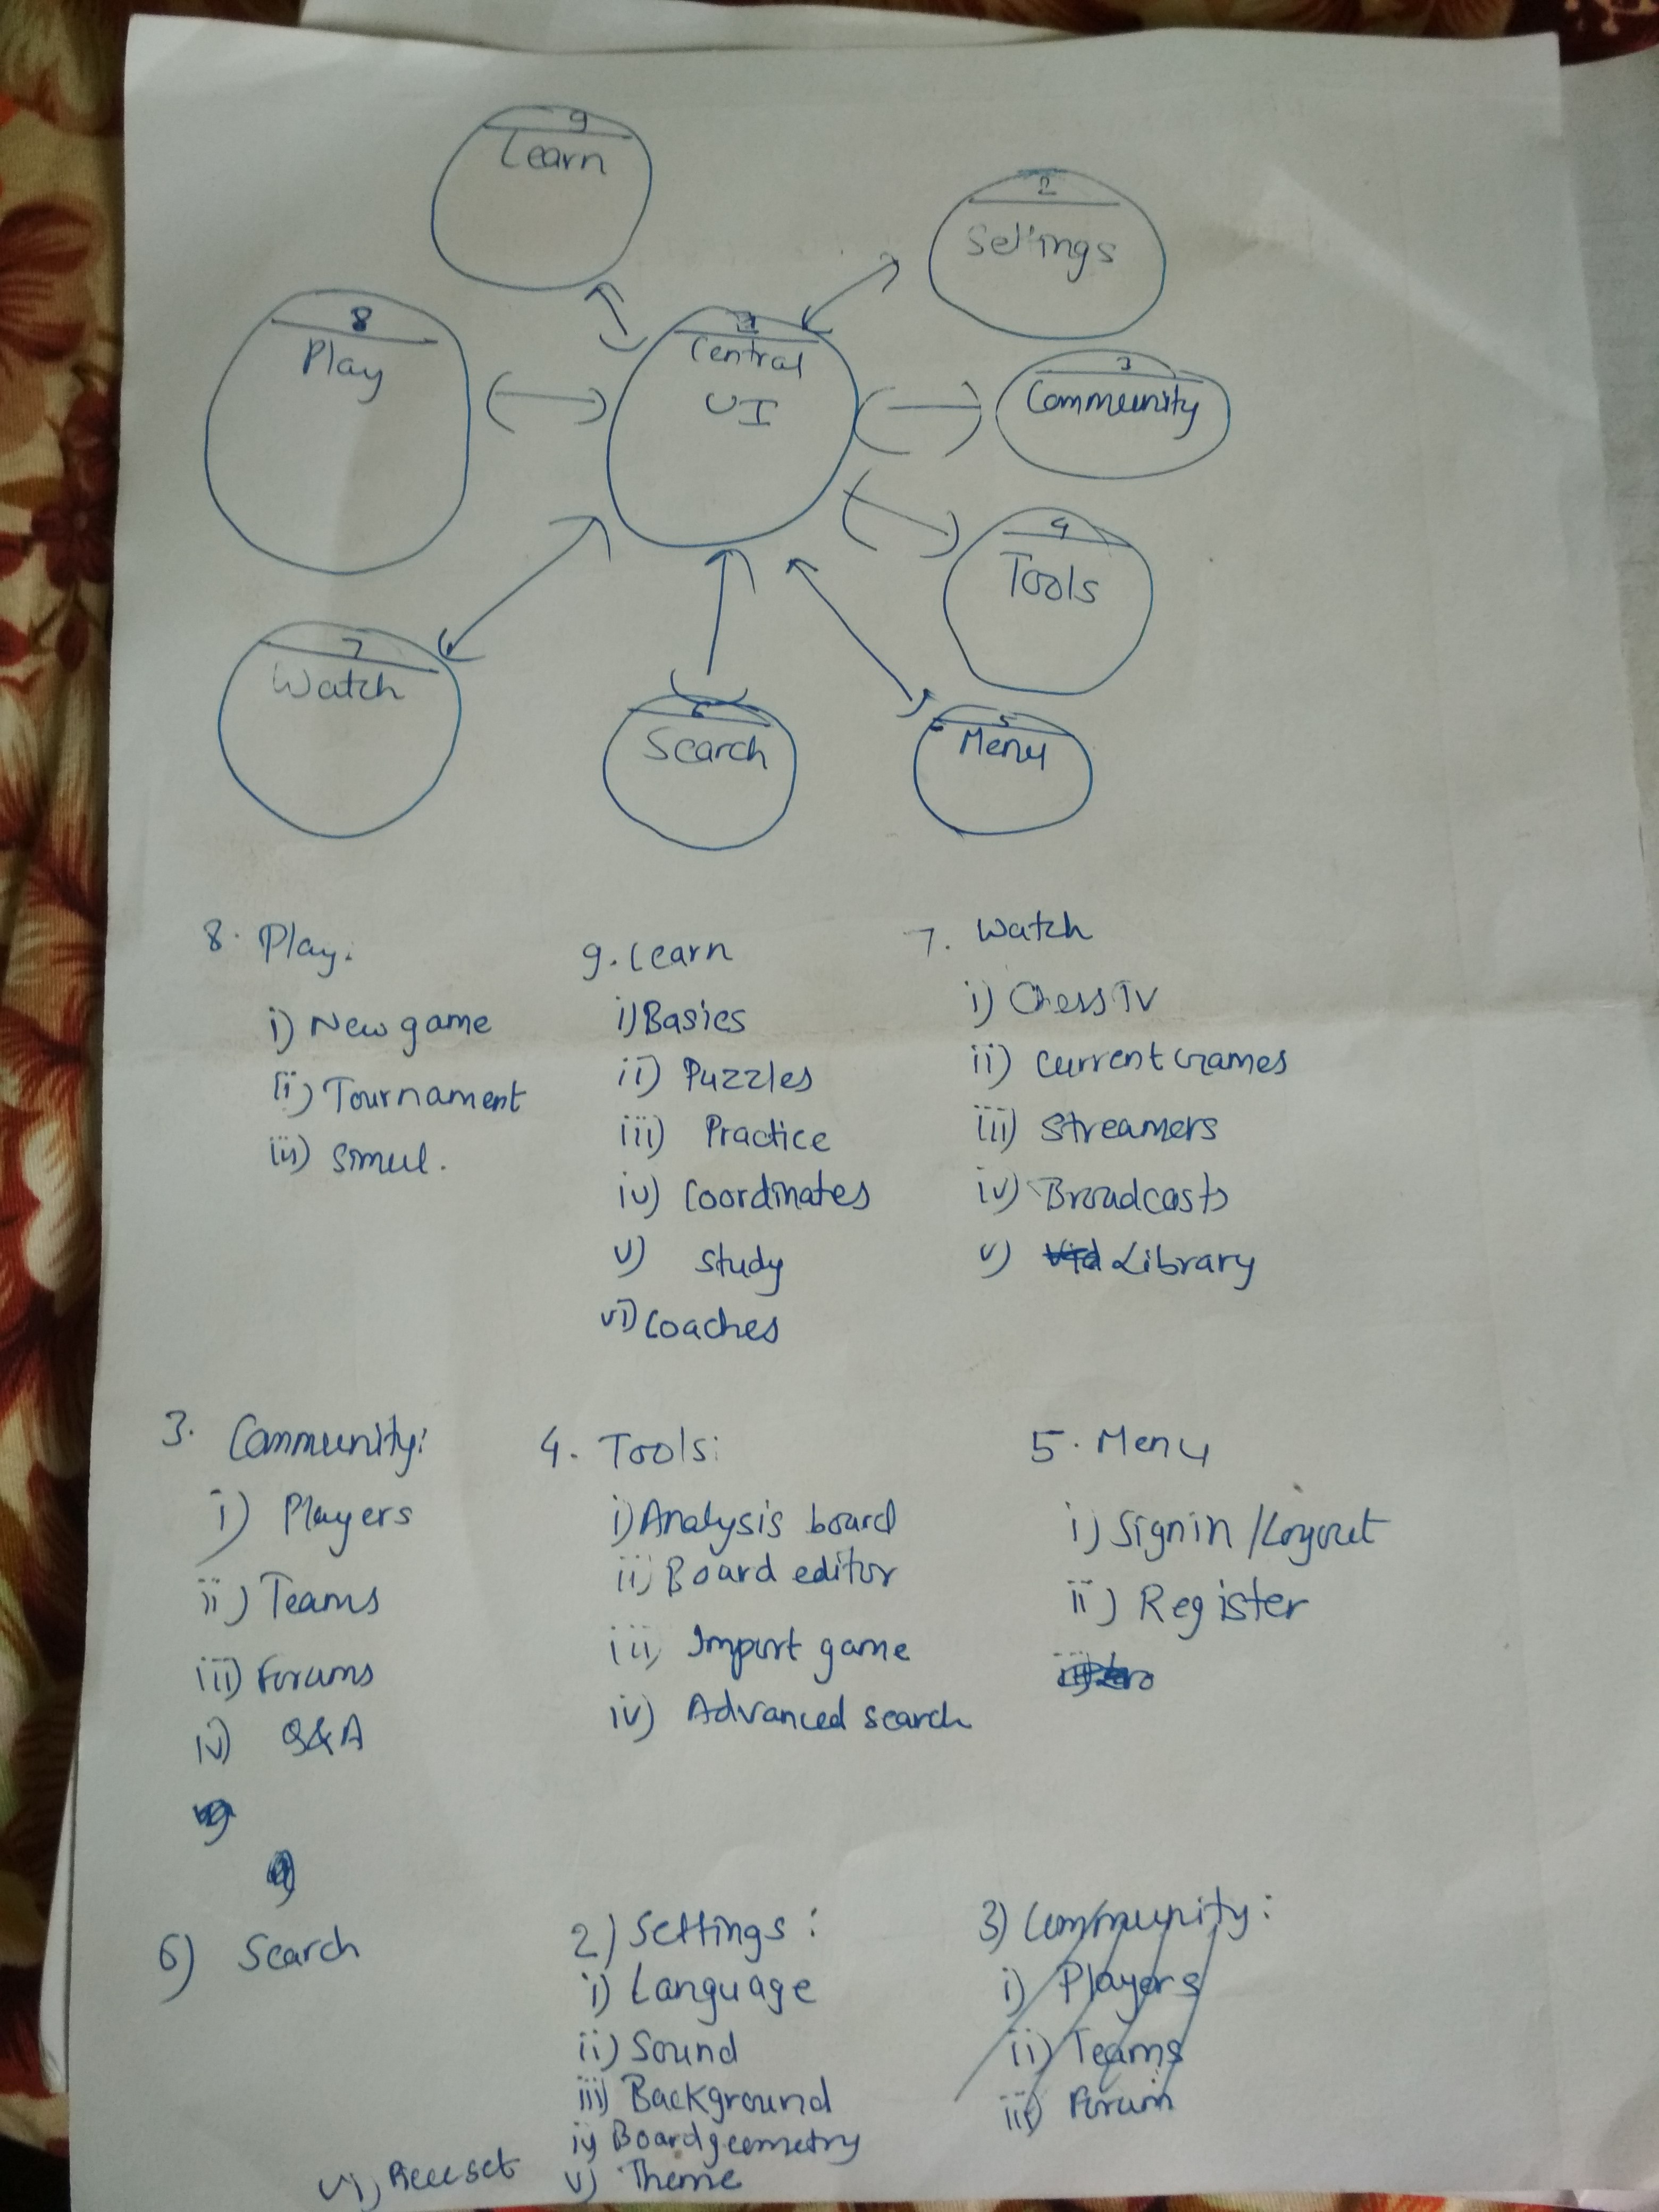 9
Learn
2
Settings
8
Play
1
Central
UI
3
Community
4
Tools
7
Watch
6
Search
5
Menu
8. Play:
i) New game
ii) Tournament
iii) Simul.
9. Learn
i) Basics
ii) Puzzles
iii) Practice
iv) Coordinates
v) Study
vi) Coaches
7. Watch
i) Chess TV
ii) Current Games
iii) Streamers
iv) Broadcasts
v) Library
3. Community:
i) Players
ii) Teams
iii) Forums
iv) Q&A
4. Tools:
i) Analysis board
ii) Board editor
iii) Import game
iv) Advanced search
5. Menu
i) Signin / Logout
ii) Register
6) Search
2) Settings:
i) Language
ii) Sound
iii) Background
iv) Board geometry
v) Theme
vi) Piece set
3) Community:
i) Players
ii) Teams
iii) Forum